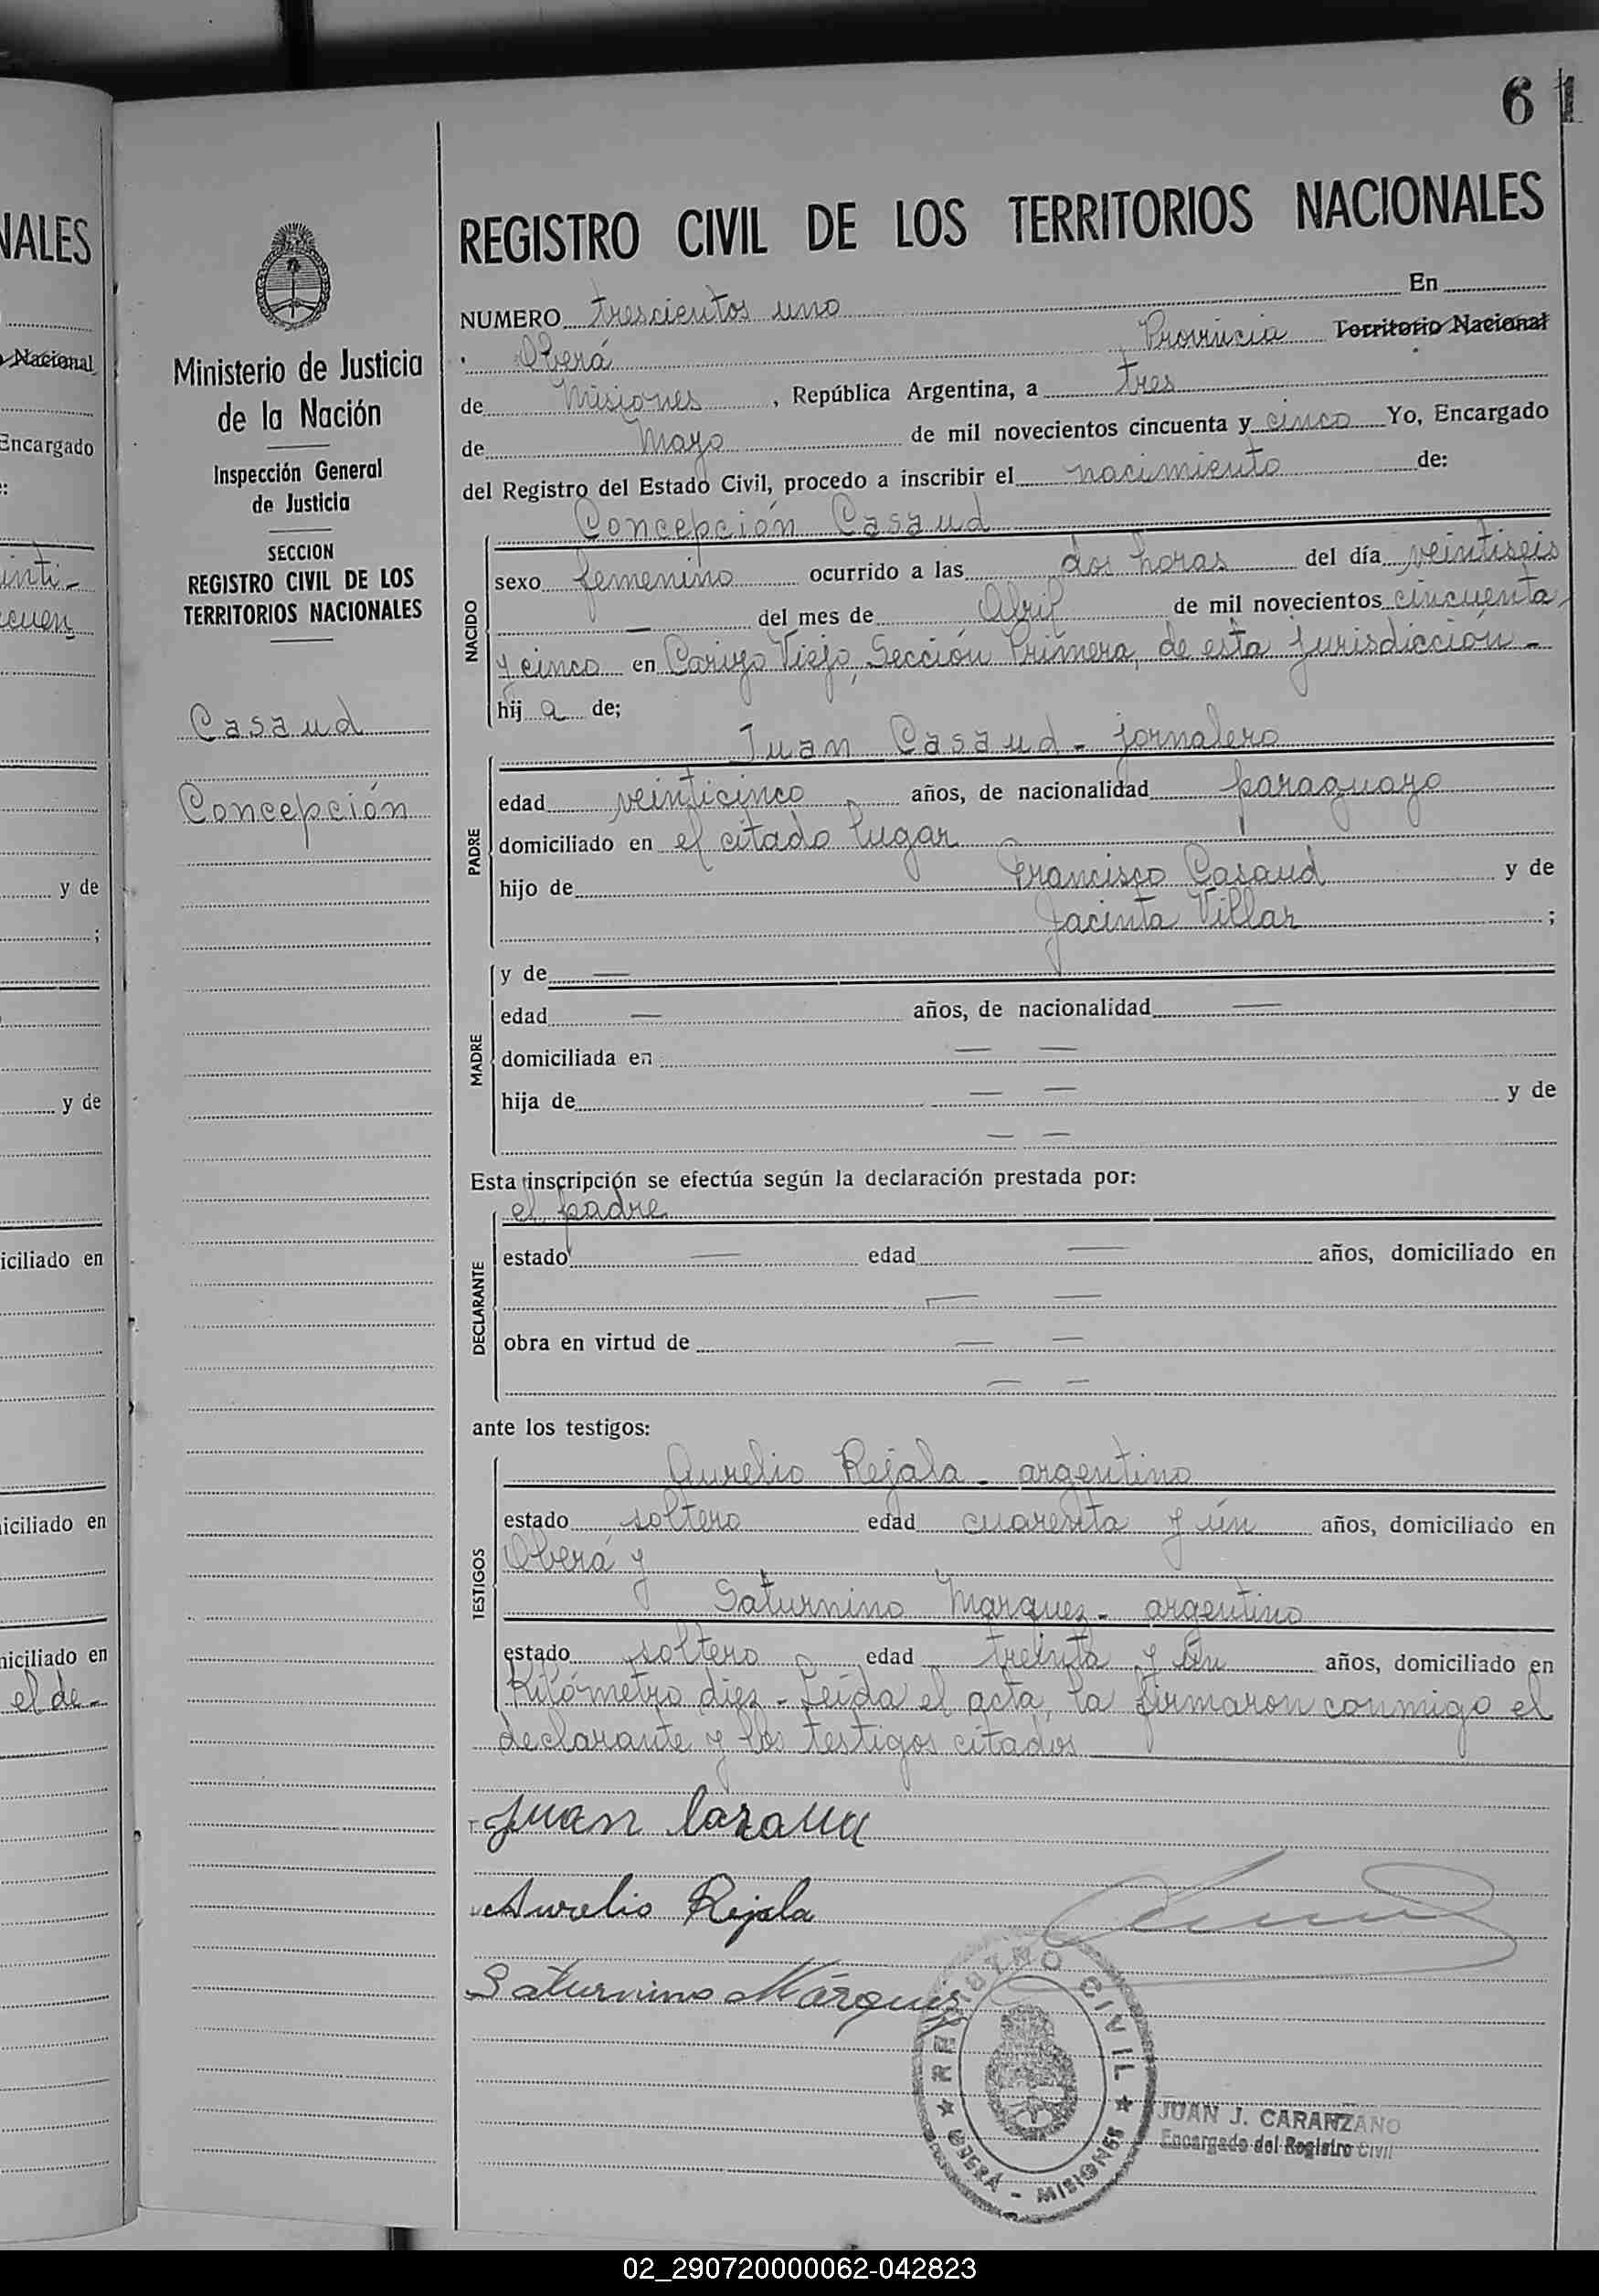 61
NALES
REGISTRO CIVIL DE LOS TERRITORIOS NACIONALES
NUMERO trescientos uno En
Nacional
Oberá Provincia Territorio Nacional
Ministerio de Justicia
de la Nación
de Misiones, República Argentina, a tres
Encargado
de Mayo de mil novecientos cincuenta y cinco Yo, Encargado
Inspección General
de Justicia
del Registro del Estado Civil, procedo a inscribir el nacimiento de:
SECCION
REGISTRO CIVIL DE LOS
TERRITORIOS NACIONALES
Concepción Casaud
NACIDO
sexo femenino ocurrido a las dos horas del día veintiseis
— del mes de Abril de mil novecientos cincuenta
y cinco en Cariyo Viejo, Sección Primera, de esta jurisdicción -
hij a de;
Casaud
Concepción
Juan Casaud - jornalero
PADRE
edad veinticinco años, de nacionalidad paraguayo
domiciliado en el citado lugar
hijo de Francisco Casaud y de
Jacinta Villar ;
y de
;
MADRE
y de —
edad — años, de nacionalidad —
domiciliada en — —
hija de — — y de
— —
y de
Esta inscripción se efectúa según la declaración prestada por:
el padre
DECLARANTE
estado — edad — años, domiciliado en
— —
obra en virtud de — —
— —
iciliado en
ante los testigos:
TESTIGOS
Aurelio Rejala - argentino
estado soltero edad cuarenta y ún años, domiciliado en
Oberá y
Saturnino Marquez - argentino
estado soltero edad treinta y ún años, domiciliado en
Kilómetro diez - Leída el acta, la firmaron conmigo el
declarante y los testigos citados
iciliado en
niciliado en
el de-
Juan
Aurelio Rejala
Saturnino Márquez
REGISTRO CIVIL
★ OBERÁ - MISIONES ★
JUAN J. CARANZANO
Encargado del Registro Civil
02_290720000062-042823